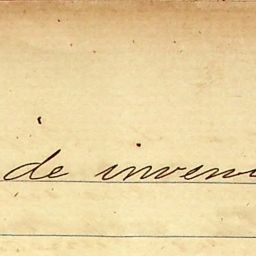 de inven